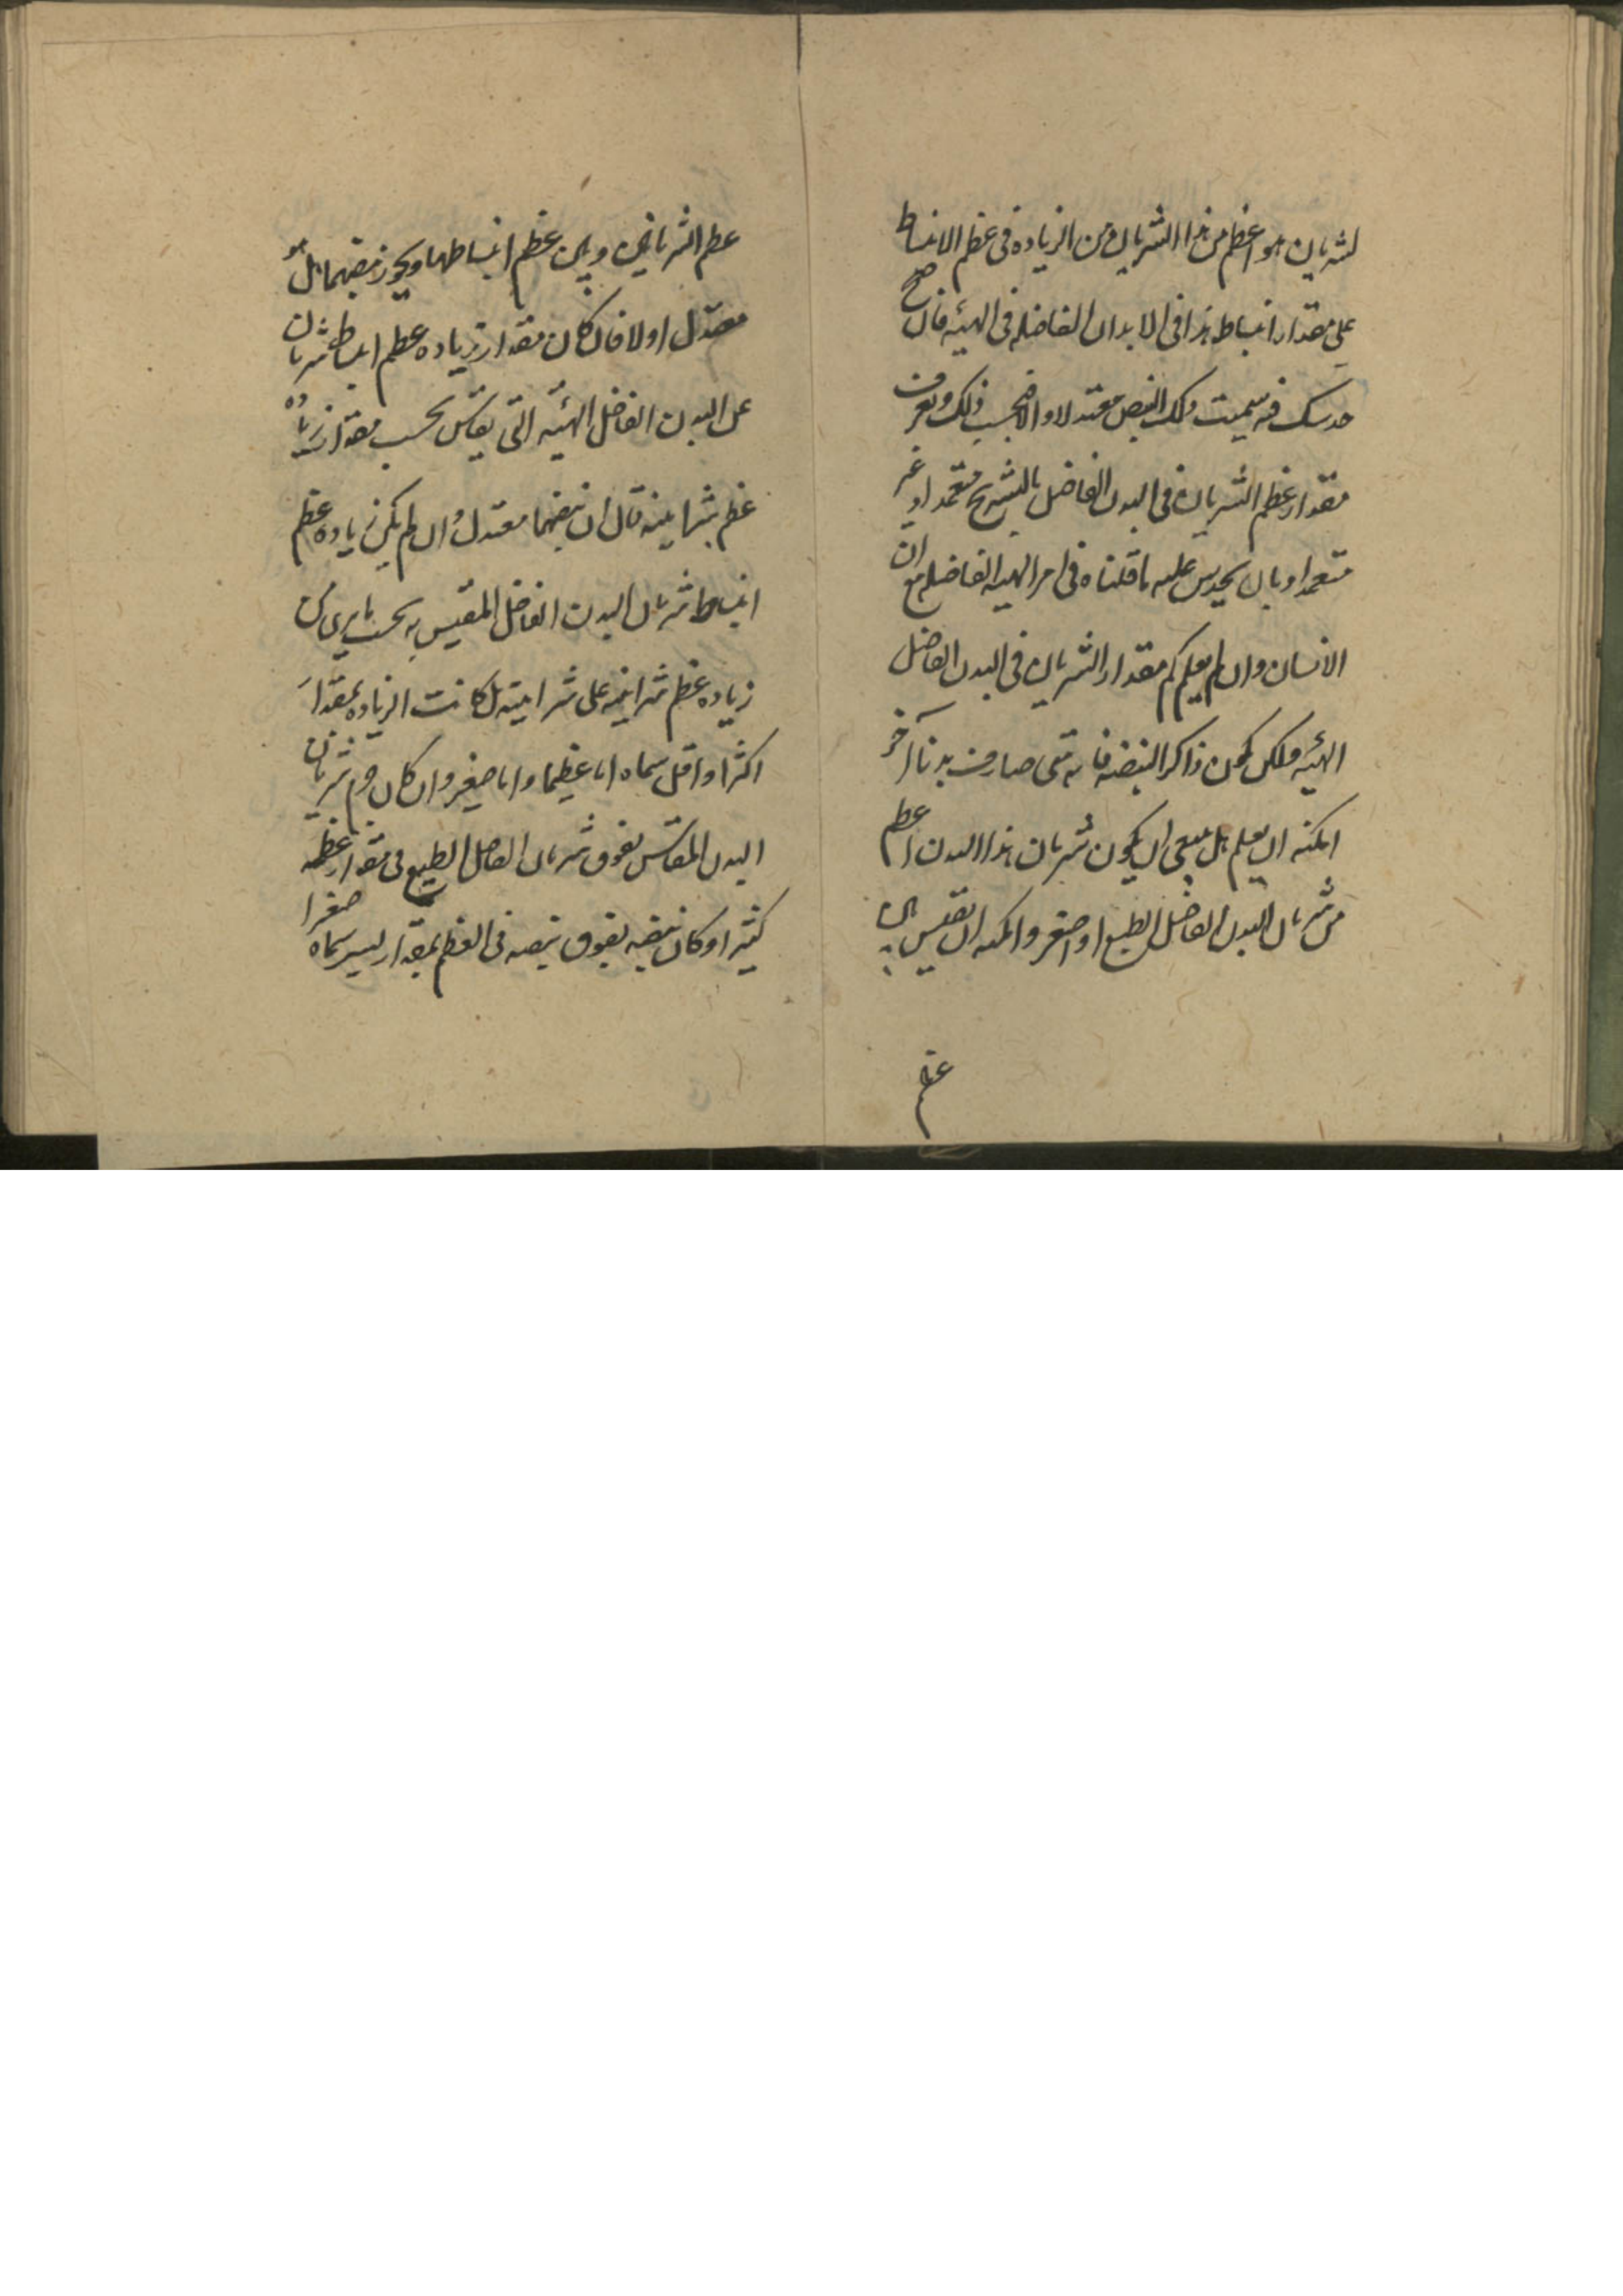 لشريان هو اعظم من هذا الشريان من الزياده فى عظم الانبساط
على مقدار انبساط هذا فى الابدان الفاضله فى الهيئه فان صح
حدسك فيه سميت ذلك النبض معتدلا والا فبحسب ذلك وتعرف
مقدار عظم الشريان فى البدن الفاضل بالتشريح متعمدا او غير
متعمد او بان يحدس عليه ما قلناه فى امر الهيه الفاضله مع ان
الانسان وان لم يعلم كم مقدار الشريان فى البدن الفاضل
الهيئه فلكن يكون ذاكرا لنبضه فانه متى صادف بدنا آخر
امكنه ان يعلم هل ينبغى ان يكون شريان هذا البدن اعظم
من شريان البدن الفاضل الطبع او اصغر وامكنه ان يقيس بين
عظم
عظم الشريانين وبين عظم انبساطهما ويحرز نبضهما هل هو
معتدل اولا فان كان مقدار زياده عظم انبساط شريان
عن البدن الفاضل الهيئه التى يقاس بحسب مقدار زياده
عظم شرايينه قال ان نبضهما معتدل وان لم يكن زياده عظم
انبساط شريان البدن الفاضل المقيس به بحسب ما يرى من
زياده عظم شرايينه على شرايينه بل كانت الزياده بمقدار
اكثر او اقل سماه اما عظيما واما صغيرا وان كان جرم شريان
البدن المقاس يفوق شريان الفاضل الطبع فى مقدار عظمه
كثيرا وكان نبضه يفوق نبضه فى العظم بمقدار يسير سماه صغيرا